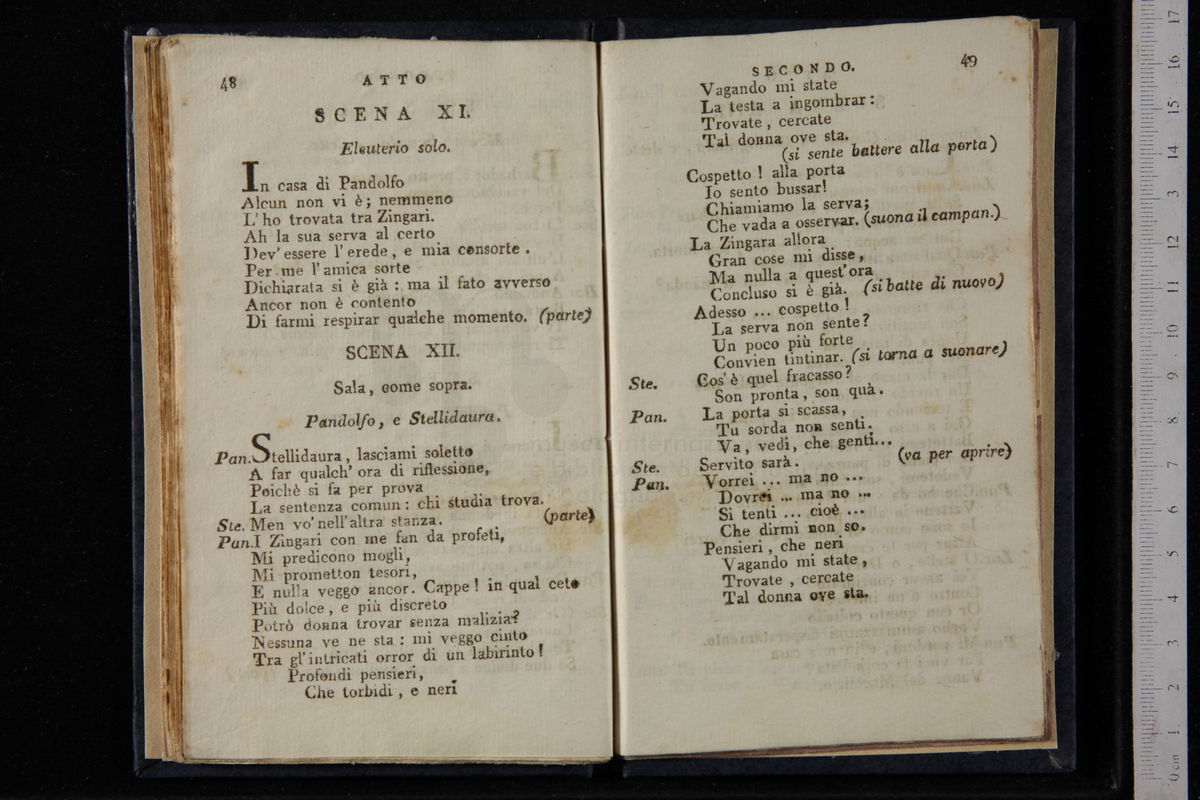 48
ATTO
SCENA XI.
Eleuterio solo.
In casa di Pandolfo
Alcun non vi è; nemmeno
L'ho trovata tra Zingari.
Ah la sua serva al certo
Dev' essere l'erede, e mia consorte.
Per me l'amica sorte
Dichiarata si è già: ma il fato avverso
Ancor non è contento
Di farmi respirar qualche momento. (parte)
SCENA XII.
Sala, come sopra.
Pandolfo, e Stellidaura.
Pan. Stellidaura, lasciami soletto
A far qualch' ora di riflessione,
Poichè si fa per prova
La sentenza comun: chi studia trova.
Ste. Men vo' nell'altra stanza. (parte)
Pan. I Zingari con me fan da profeti,
Mi predicono mogli,
Mi prometton tesori,
E nulla veggo ancor. Cappe! in qual ceto
Più dolce, e più discreto
Potrò donna trovar senza malizia?
Nessuna ve ne sta: mi veggo cinto
Tra gl'intricati orror di un labirinto!
Profondi pensieri,
Che torbidi, e neri
SECONDO.
49
Vagando mi state
La testa a ingombrar:
Trovate, cercate
Tal donna ove sta.
(si sente battere alla porta)
Cospetto! alla porta
Io sento bussar!
Chiamiamo la serva;
Che vada a osservar. (suona il campan.)
La Zingara allora
Gran cose mi disse,
Ma nulla a quest'ora
Concluso si è già. (si batte di nuovo)
Adesso ... cospetto!
La serva non sente?
Un poco più forte
Convien tintinar. (si torna a suonare)
Ste. Cos' è quel fracasso?
Son pronta, son quà.
Pan. La porta si scassa,
Tu sorda non senti.
Va, vedi, che genti...
Ste. Servito sarà. (va per aprire)
Pan. Vorrei ... ma no ...
Dovrei ... ma no ...
Si tenti ... cioè ...
Che dirmi non so.
Pensieri, che neri
Vagando mi state,
Trovate, cercate
Tal donna ove sta.